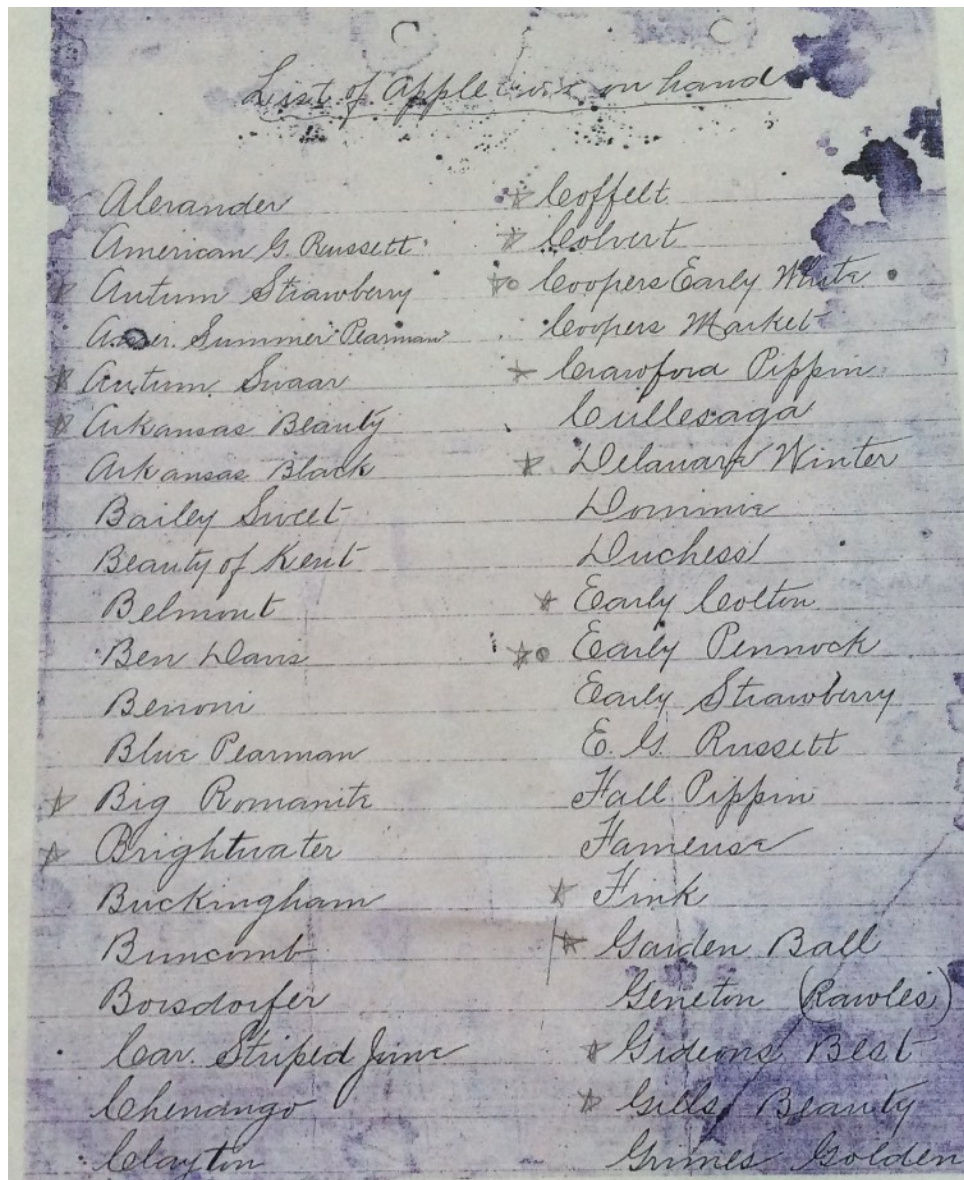 List of Apple on hand
Alexander
American G. Russett
☆ Autum Strawberry
Amer. Summer Pearman
☆ Autum Swaar
☆ Arkansas Beauty
Arkansas Black
Bailey Sweet
Beauty of Kent
Belmont
Ben Davis
Benoni
Blue Pearman
☆ Big Romanite
☆ Brightwater
Buckingham
Buncomb
Borsdorfer
Car. Striped June
Chenango
Clayton
☆ Coffelt
☆ Colvert
☆ Coopers Early White
Coopers Market
☆ Crawford Pippin
Cullesaga
☆ Delaware Winter
Dominie
Duchess
☆ Early Colton
☆ Early Pennock
Early Strawberry
E. G. Russett
Fall Pippin
Fameuse
☆ Fink
☆ Garden Ball
Geneton (Rawles)
☆ Gideons Best
☆ Gills Beauty
Grimes Golden